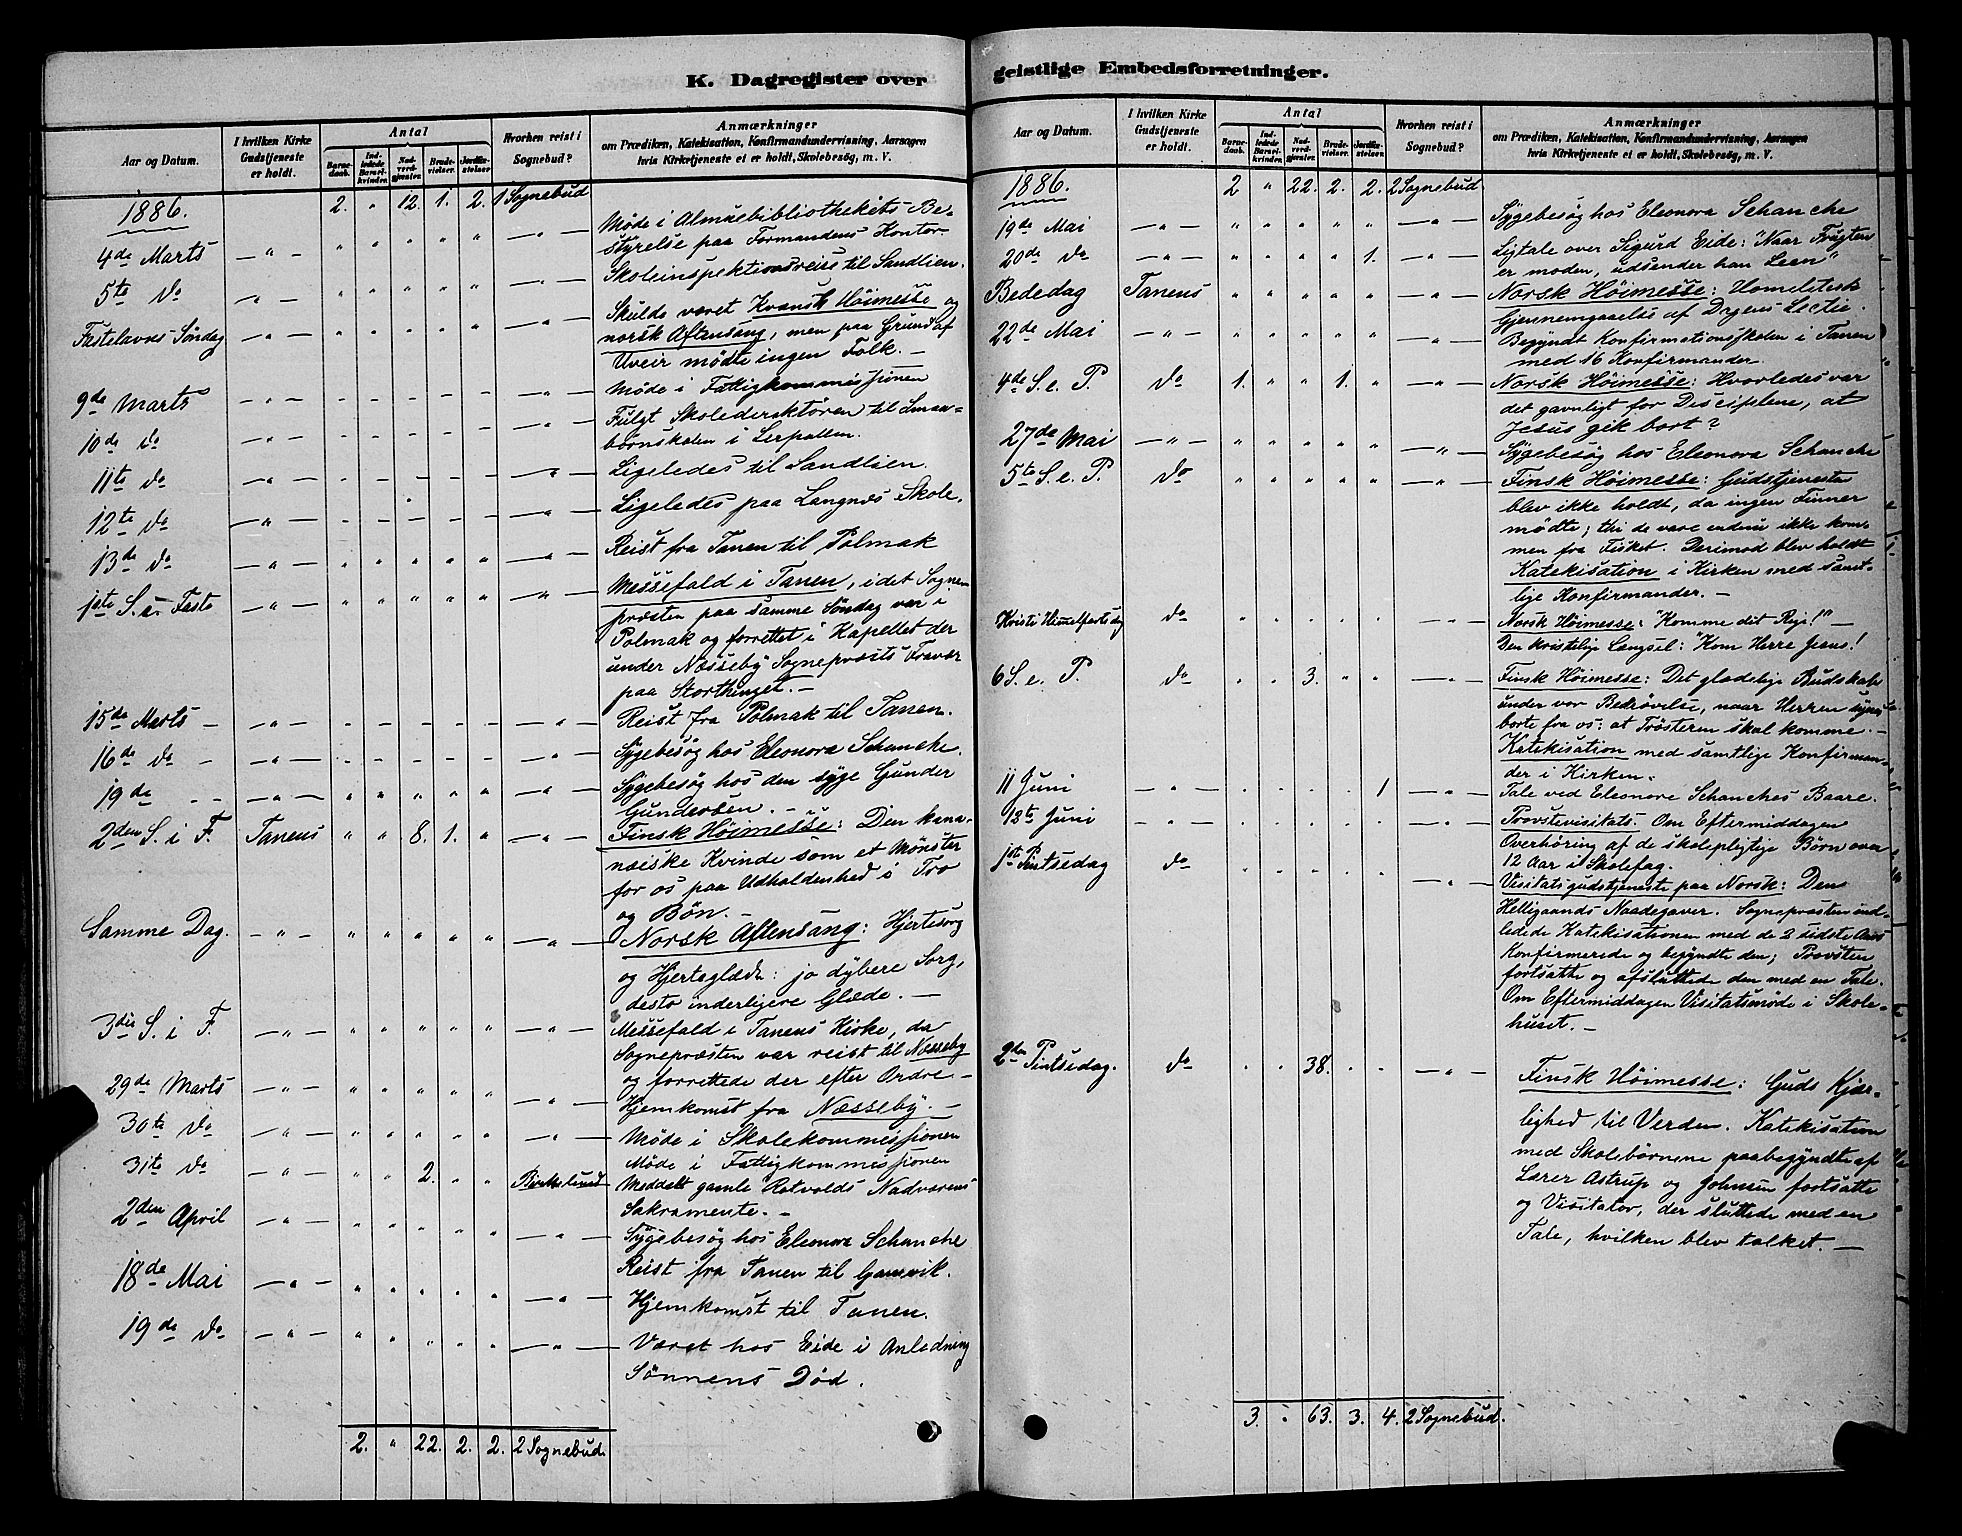 K. Dagregister over
Aar og Datum.
I hvilken Kirke
Gudstjeneste
er holdt.
Antal
Barne-
daab.
Ind-
ledede
Barsel-
kvinder.
Nad-
verd-
gjester.
Brude-
vielser.
Jordfæ-
stelser.
Hvorhen reist i
Sognebud?
Anmærkninger
om Prædiken, Katekisation, Konfirmandundervisning, Aarsagen
hvis Kirketjeneste ei er holdt, Skolebesøg, m. V.
1886. 2. " 12. 1. 2. 1 Sognebud
4de Marts
Møde i Almuebibliothekets Be-
styrelse paa Formandens Kontor.
5te do
Skoleinspektionsreise til Sandlien.
Fastelavns Søndag
Skulde været Kvænsk Høimesse og
norsk Aftensang, men paa Grund af
Uveir mødte ingen Folk. —
9de Marts
Møde i Fattigkommissionen
10de do
Fulgt Skoledirektøren til Smaa-
børnskolen i Lerpollen.
11te do
Ligeledes til Sandlien.
12te do
Ligeledes paa Langnes Skole.
13de do
Reist fra Tanen til Polmak
1ste S. i Faste
Messefald i Tanen, idet Sogne-
præsten paa samme Søndag var i
Polmak og forrettet i Kapellet der
under Næsseby Sognepræsts Fravær
paa Storthinget. —
15de Marts
Reist fra Polmak til Tanen.
16de do
Sygebesøg hos Eleonora Schanche.
19de
Sygebesøg hos den syge Gunder
Gundersen. —
2den S. i F. Tanens " " 8. 1. "
Finsk Høimesse: Den kana-
næiske Kvinde som et Mønster
for os paa Udholdenhed i Tro
og Bøn. —
Samme Dag.
Norsk Aftensang: Hjertesorg
og Hjerteglæde: jo dybere Sorg,
desto inderligere Glæde. —
3die S. i F.
Messefald i Tanens Kirke, da
Sognepræsten var reist til Næsseby
og forrettede der efter Ordre —
29de Marts
Hjemkomst fra Næsseby. —
30te do
Møde i Skolekommissionen
31te do 2.
Møde i Fattigkommissionen
Meddelt gamle Rotvolds Nadverens
Sakramente. —
2den April
Sygebesøg hos Eleonora Schanche
Reist fra Tanen til Gamvik.
18de Mai
Hjemkomst til Tanen.
19de do
Været hos Eide i Anledning
Sønnens Død.
2. " 22. 2. 2. 2 Sognebud.
geistlige Embedsforretninger.
Aar og Datum.
I hvilken Kirke
Gudstjeneste
er holdt.
Antal
Barne-
daab.
Ind-
ledede
Barsel-
kvinder.
Nad-
verd-
gjester.
Brude-
vielser.
Jordfæ-
stelser.
Hvorhen reist i
Sognebud?
Anmærkninger
om Prædiken, Katekisation, Konfirmandundervisning, Aarsagen
hvis Kirketjeneste ei er holdt, Skolebesøg, m. V.
1886. 2 " 22. 2. 2. 2 Sognebud.
19de Mai
Sygebesøg hos Eleonora Schanche
20de do 1.
Ligtale over Sigurd Eide: "Naar Frugten
er moden, udsender han Leen"
Bededag Tanens
Norsk Høimesse: Homiletisk
Gjennemgaaelse af Dagens Lectie.
22de Mai
Begyndt Konfirmationsskolen i Tanen
med 16 Konfirmander.
4de S. e. P. do 1. " " 1. "
Norsk Høimesse: Hvorledes var
det gavnligt for Disciplene, at
Jesus gik bort?
27de Mai
Sygebesøg hos Eleonora Schanche
5te S. e. P. do
Finsk Høimesse: Gudstjeneste
blev ikke holdt, da ingen Finner
mødte; thi de vare endnu ikke kom-
men fra Fisket. Derimod blev holdt
Katekisation i Kirken med samt-
lige Konfirmander. —
Kristi Himmelfartsdag do
Norsk Høimesse: "Komme dit Rige!" —
Den kristelige Længsel: "Kom Herre Jesus!
6 S. e. P. do " " 3. " "
Finsk Høimesse: Det glædelige Budskab
under vor Bedrøvelse, naar Herren synes
borte fra os: at Trøsteren skal komme. —
Katekisation med samtlige Konfirman-
der i Kirken.
11 Juni 1
Tale ved Eleonore Schanches Baare.
12te Juni
Provstevisitats. Om Eftermiddagen
Overhøring af de skolepligtige Børn over
12 Aar i Skolefag.
1ste Pintsedag do
Visitatsgudstjeneste paa Norsk: Den
Helligaands Naadegaver. Sognepræsten ind-
ledede Katekisationen med de 2 sidste Aars
Konfirmerede og begyndte den; Provsten
fortsatte og afsluttede den med en Tale.
Om Eftermiddagen Visitatsmøde i Skole-
huset. —
2den Pintsedag. do " " 38. " "
Finsk Høimesse: Guds Kjær-
lighed til Verden. Katekisation
med Skolebørnene paabegyndte af
Lærer Astrup og Johnsen fortsatte
og Visitator, der sluttede med en
Tale, hvilken blev tolket. —
3. " 63. 3. 4. 2 Sognebud.